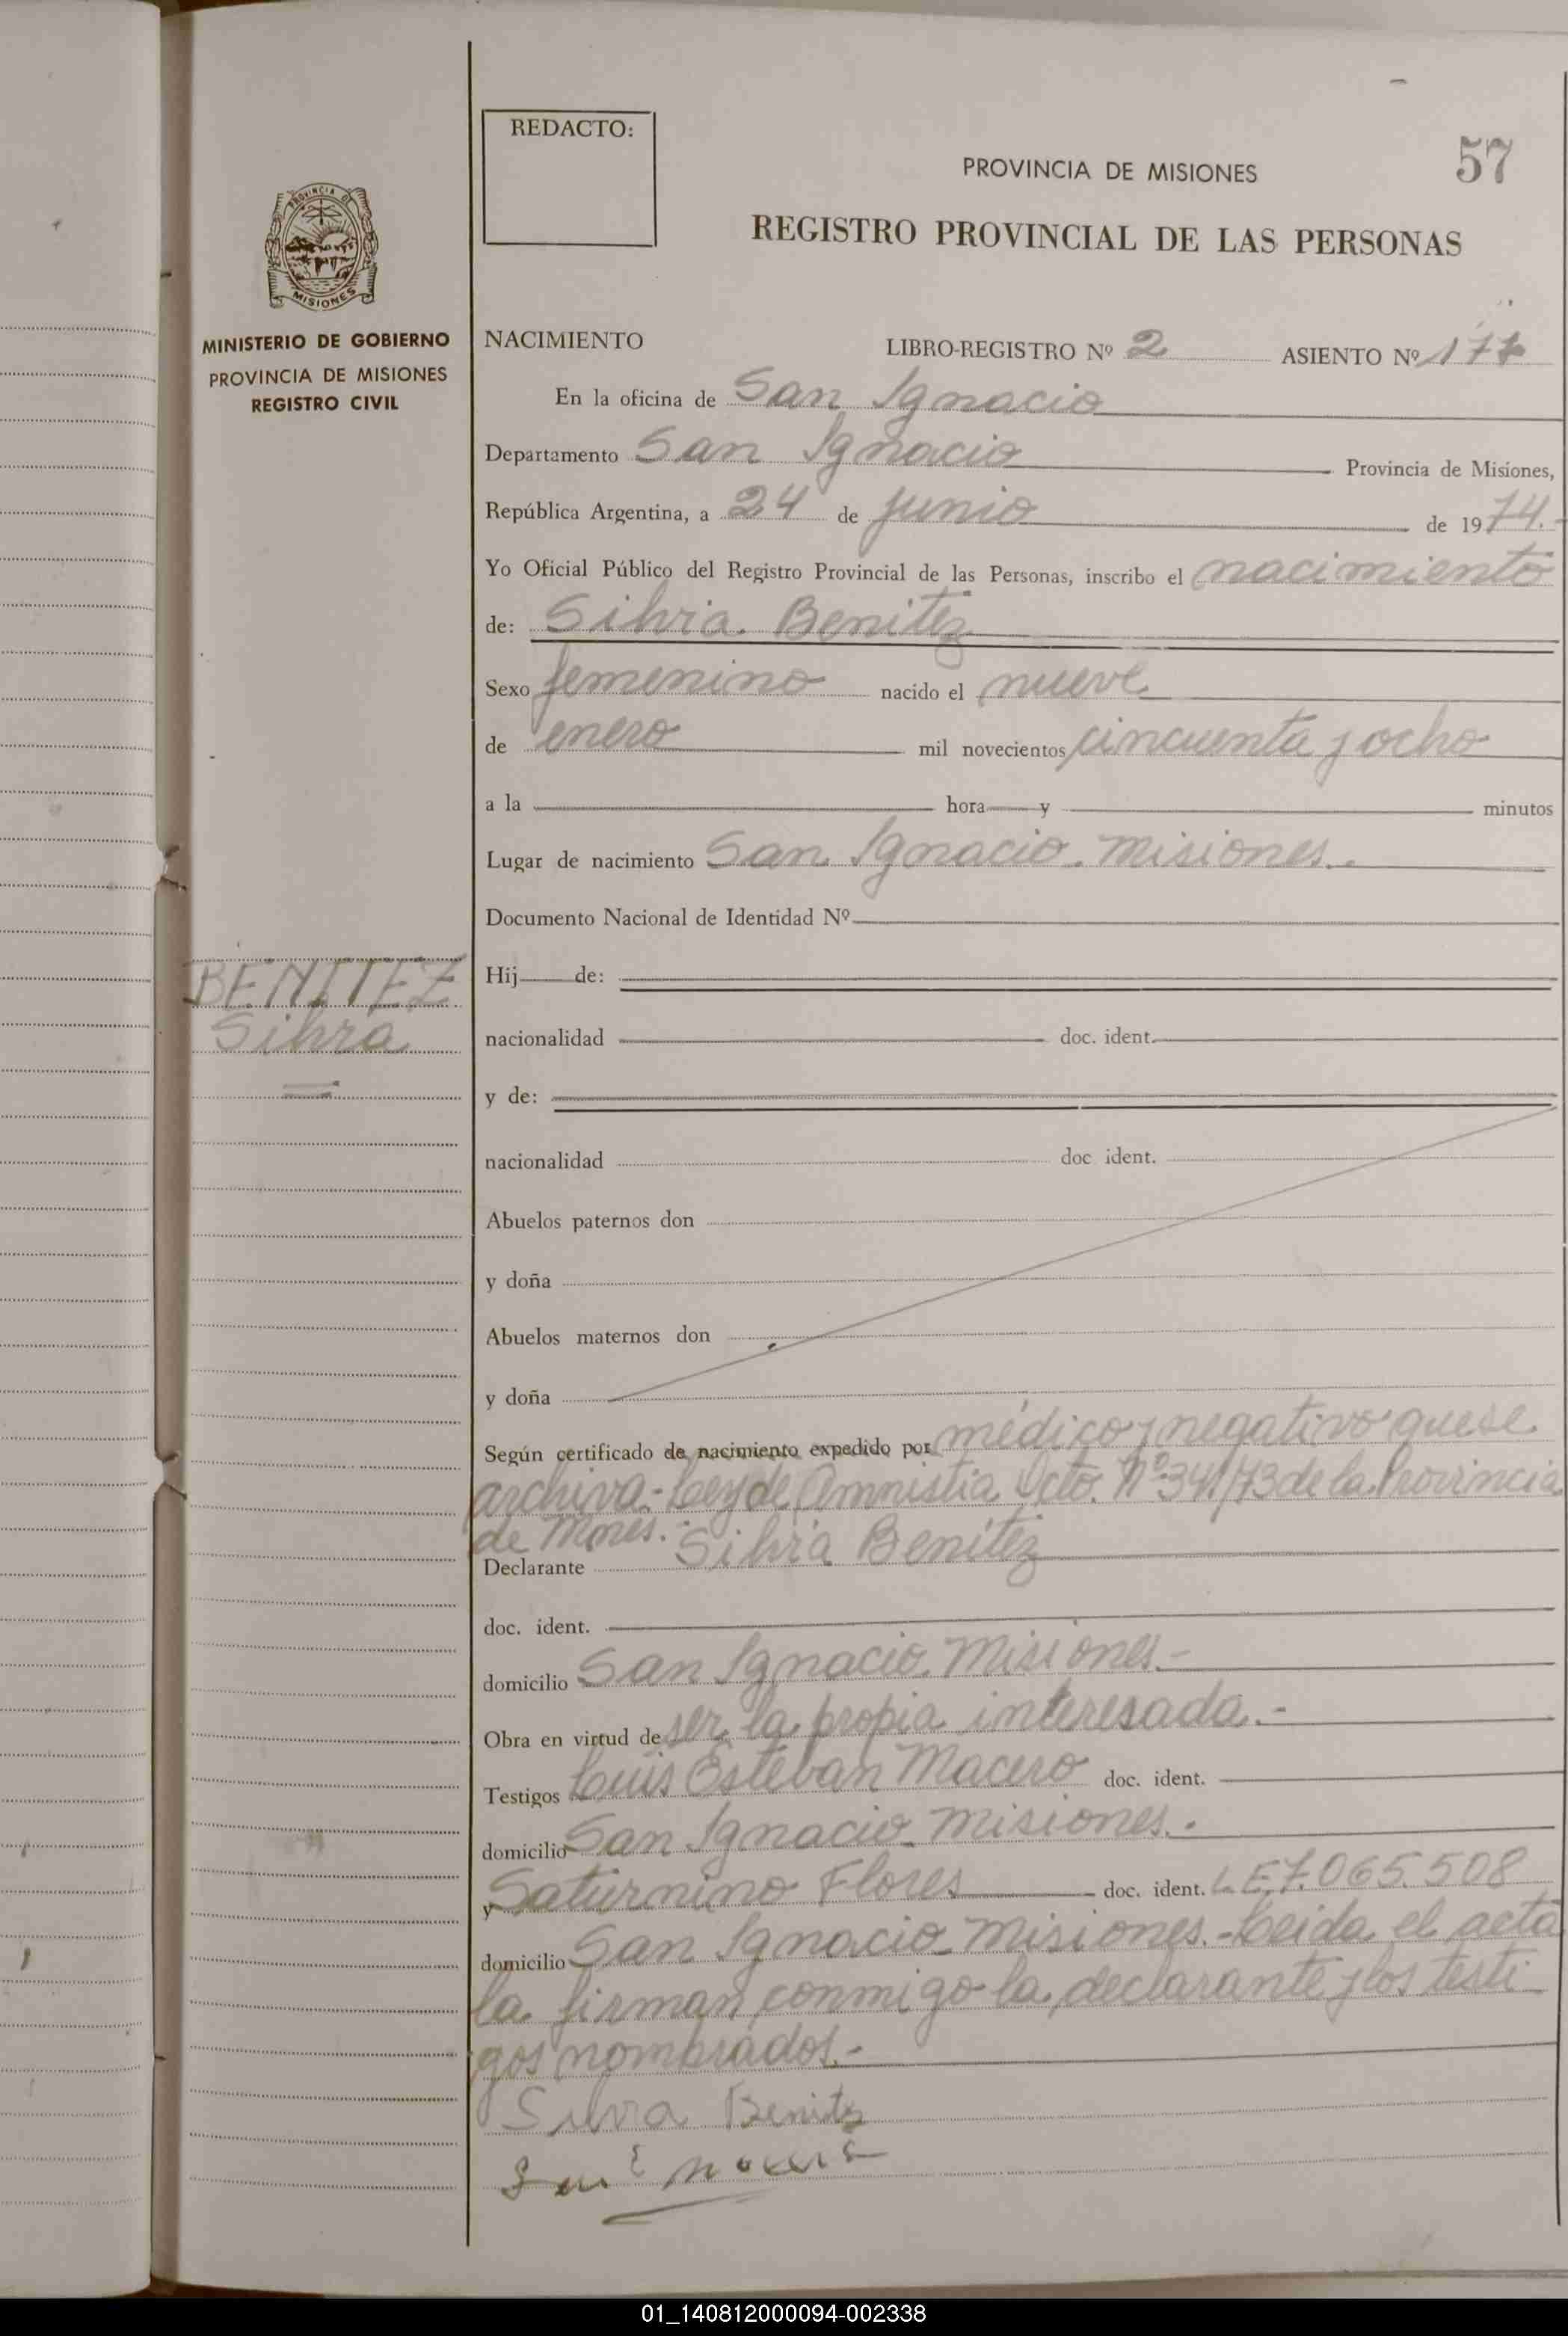 REDACTO:
57
PROVINCIA DE MISIONES
REGISTRO PROVINCIAL DE LAS PERSONAS
PROVINCIA DE
MISIONES
MINISTERIO DE GOBIERNO
PROVINCIA DE MISIONES
REGISTRO CIVIL
NACIMIENTO LIBRO-REGISTRO Nº 2 ASIENTO Nº 177
En la oficina de San Ignacio
Departamento San Ignacio Provincia de Misiones,
República Argentina, a 24 de junio de 1974.-
Yo Oficial Público del Registro Provincial de las Personas, inscribo el nacimiento
de: Silvia Benitez
Sexo femenino nacido el nueve
de enero mil novecientos cincuenta y ocho
a la hora y minutos
Lugar de nacimiento San Ignacio. Misiones.
Documento Nacional de Identidad Nº
BENITEZ
Silvia
Hij de:
nacionalidad doc. ident.
y de:
nacionalidad doc ident.
Abuelos paternos don
y doña
Abuelos maternos don
y doña
Según certificado de nacimiento expedido por médico y negativo que se
archiva.- Ley de Amnistia Dcto. Nº 341/73 de la Provincia
de Mnes.-
Declarante Silvia Benitez
doc. ident.
domicilio San Ignacio. Misiones.-
Obra en virtud de ser la propia interesada.-
Testigos Luis Esteban Macero doc. ident.
domicilio San Ignacio. Misiones.-
y Saturnino Flores doc. ident. L.E.7.065.508
domicilio San Ignacio. Misiones.- Leida el acta
la firman conmigo la declarante y los testi-
gos nombrados.-
Silvia Benitez
01_140812000094-002338